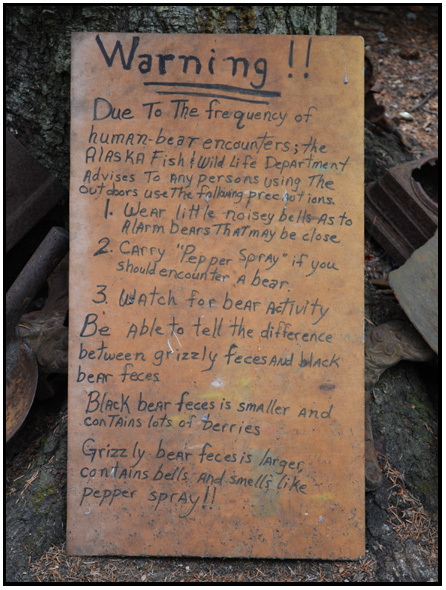 Warning !!
Due To The frequency of
human-bear encounters; the
Alaska Fish & Wild Life Department
Advises To Any persons using The
Outdoors use The following precautions.
1. Wear little noisey bells As to
Alarm bears That may be close
2. Carry "Pepper Spray" if you
should encounter A bear.
3. Watch for bear Activity
Be Able to tell the difference
between grizzly feces And black
bear feces
Black bear feces is smaller and
contains lots of berries
Grizzly bear feces is larger,
contains bells and smells like
pepper spray!!